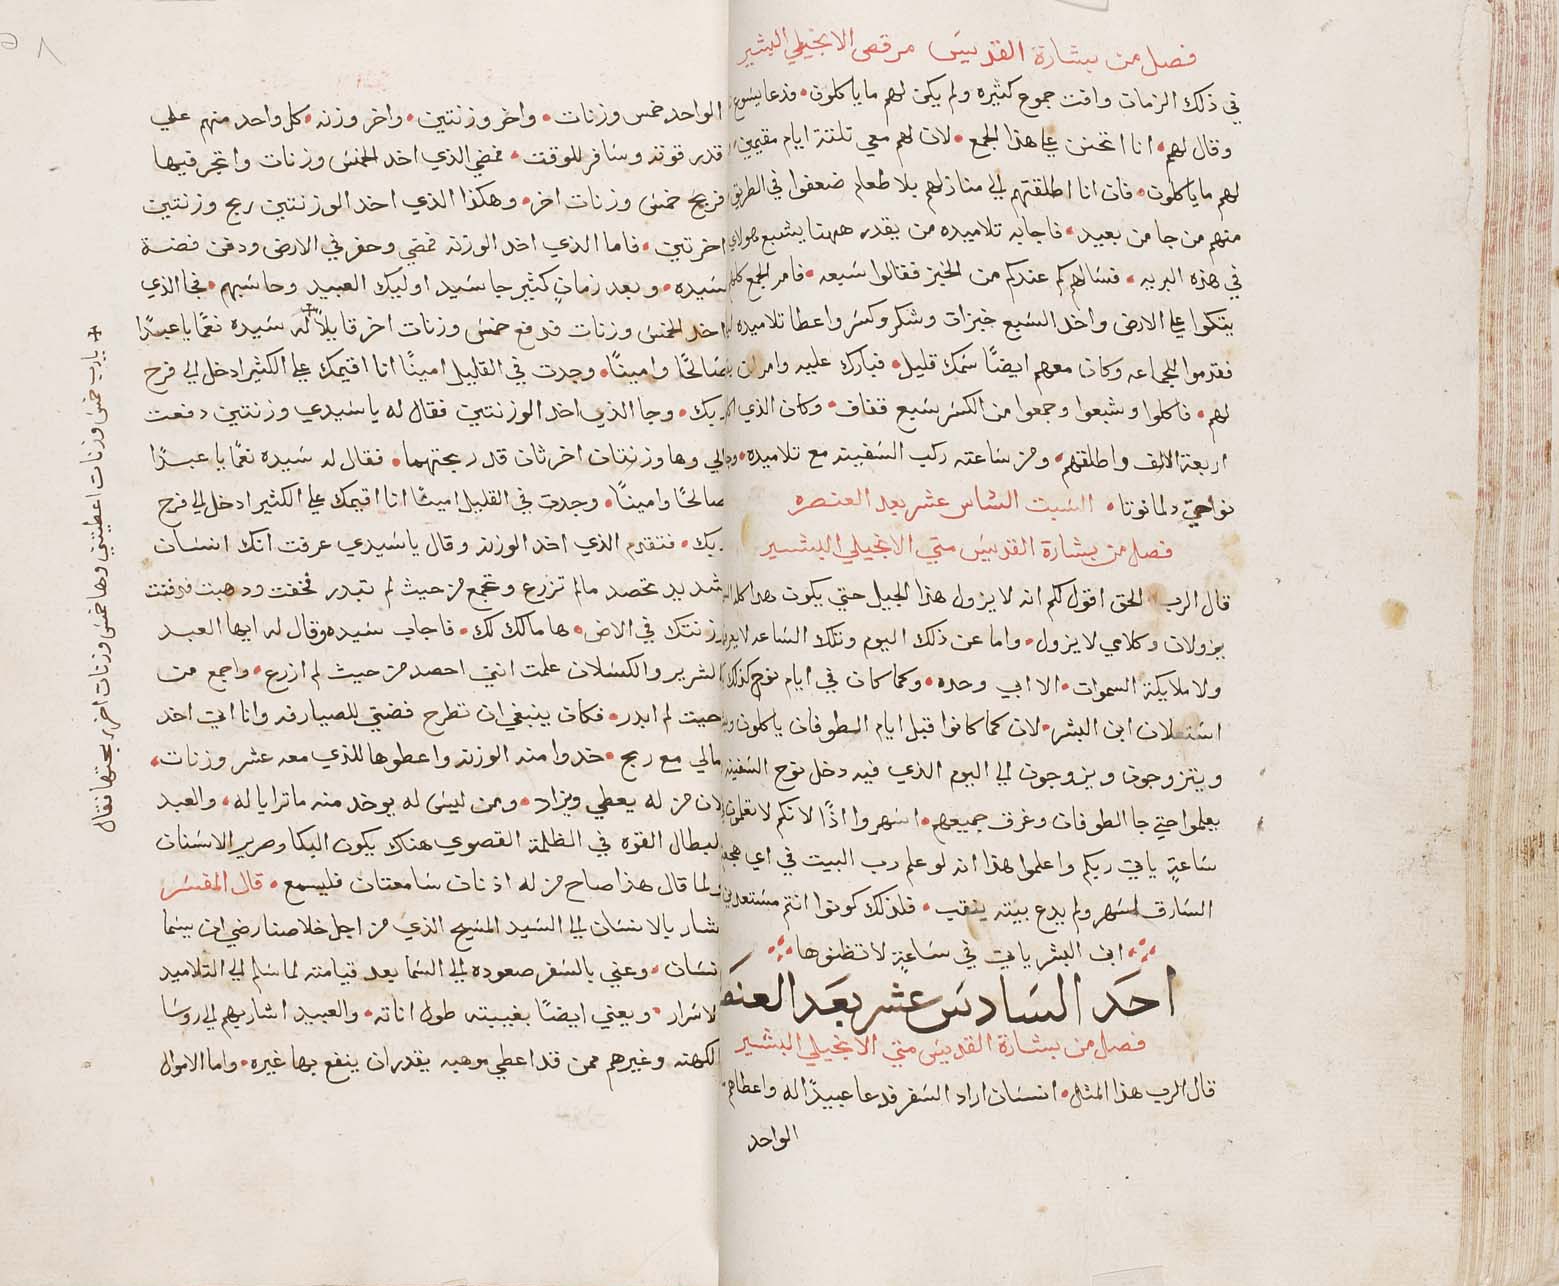 فصل من بشارة القديس مرقص الانجيلي البشير
في ذلك الزمان وافت جموع كثيره ولم يكن لهم ما ياكلون • فدعا يسوع
وقال لهم • انا اتحنن علي هذا الجمع • لان لهم معي تلتة ايام مقيمين
لهم ما ياكلون • فان انا اطلقتهم الي منازلهم بلا طعام ضعفوا في الطريق
منهم من جا من بعيد • فاجابه تلاميده من يقدر ههنا يشبع هولاي
في هذه البريه • فسالهم كم عندكم من الخبز فقالوا سبعه • فامر الجمع
يتكوا علي الارض واخد السبع خبزات وشكر وكسر واعطا تلاميده
فقدموا للجماعه وكان معهم ايضًا سمك قليل • فبارك عليه وامر ان
لهم • فاكلوا وشبعوا وجمعوا من الكسر سبع قفاف • وكان الذي
اربعة الالف واطلقهم • ومن ساعته ركب السفينه مع تلاميده •
نواحي دلمانوتا • السبت الساس عشر بعد العنصره
فصل من بشارة القديس متي الانجيلي البشير
قال الرب الحق اقول لكم انه لا يزول هذا الجيل حتي يكون هدا كله
يزولان وكلامي لا يزول • واما عن ذلك اليوم وتلك الساعه لا
ولا ملايكة السموات • الا ابي وحده • وكما كان في ايام نوح كذلك
استعلان ابن البشر • لان كما كانوا قبل ايام الطوفان ياكلون
ويتزوجون ويزوجون الي اليوم الذي فيه دخل نوح السفينه
يعلموا حتي جا الطوفان وغرف جميعهم • اسهروا اذًا لانكم لا تعلمون
ساعةٍ ياتي ربكم واعلموا هذا انه لو علم رب البيت في اي
السارق لسهر ولم يدع بيته ينقب • فلذلك كونوا انتم مستعدين
ابن البشر ياتي في ساعةٍ لا تظنوها
احد السادس عشر بعد
فصل من بشارة القديس متي الانجيلي البشير
قال الرب هذا المثل • انسان اراد السفر فدعا عبيدًا له واعطاهم
الواحد
الواحد خمس وزنات • واخر وزنتين • واخر وزنه • كل واحد منهم علي
قدر قوته وسافر للوقت • فمضي الذي اخد الخمس وزنات واتجر فيها
فربح خمس وزنات اخر • وهكذا الذي اخد الوزنتين ربح وزنتين
اخرتين • فاما الذي اخد الوزنه فمضي وحفر في الارض ودفن فضة
سيده • وبعد زمانٍ كثير جا سيد اوليك العبيد وحاسبهم • فجا الذي
اخد الخمس وزنات فدفع خمس وزنات اخر قايلاً + له سيده نعمًا يا عبدًا
صالحًا وامينًا • وجدت في القليل امينًا انا اقيمك علي الكثير ادخل الي فرح
ربك • وجا الذي اخد الوزنتين فقال له يا سيدي وزنتين دفعت
الي وها وزنتان اخرتان قد ربحتهما • فقال له سيده نعمًا يا عبدًا
صالحًا وامينًا • وجدت في القليل امينًا انا اقيمك علي الكثير ادخل الي فرح
ربك • فتقدم الذي اخد الوزنه وقال يا سيدي عرفت انك انسان
شديد تحصد مالم تزرع وتجمع من حيث لم تبدر فخفت ودهبت فدفنت
وزنتك في الاض • ها مالك لك • فاجاب سيده وقال له ايها العبد
الشرير والكسلان علمت انني احصد من حيث لم ازرع • واجمع من
حيت لم ابدر • فكان ينبغي ان تطرح فضتي للصيارفه وانا اتي اخد
مالي مع ربح • خدوا منه الوزنه واعطوها للذي معه عشر وزنات •
لان من له يعطي ويزاد • ومن ليس له يوخد منه ما ترايا له • والعبد
البطال القوه في الظلمة القصوي هناك يكون البكا وصرير الاسنان
ولما قال هذا صاح من له اذنان سامعتان فليسمع • قال المفسر
اشار بالانسان الي السيد المسيح الذي من اجل خلاصنا رضي ان يسما
انسان • وعني بالسفر صعوده الي السما بعد قيامته لما سلم الي التلاميد
الاسرار • ويعني ايضًا بغيبته طول اناته • والعبيد اشار بهم الي روسا
الكهنه وغيرهم ممن قد اعطي موهبه يقدر ان ينفع بها غيره • واما الاموال
+ يا رب خمس وزنات اعطيتني وها خمس وزنات اخر ربحتها فقال